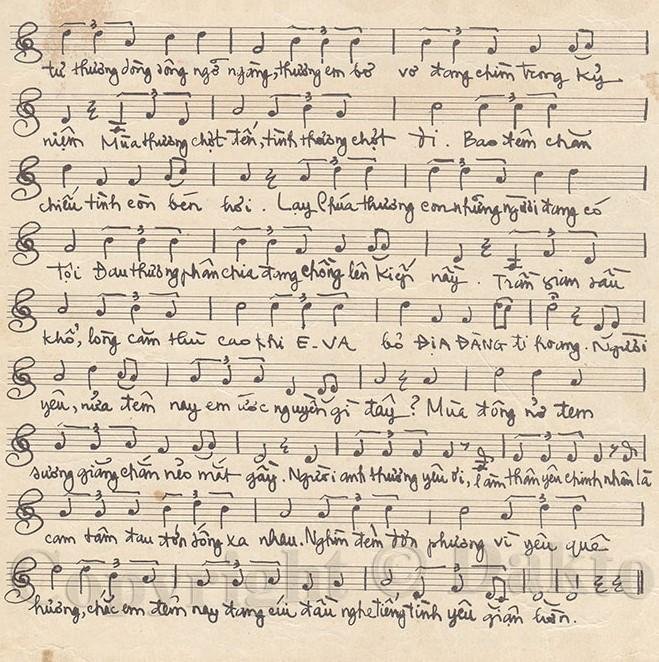 tư thương dòng sông ngỡ ngàng, thương em bơ vơ đang chìm trong kỷ
niệm Mùa thương chợt đến, tình thương chợt đi. Bao đêm chăn
chiếu tình còn bén hơi. Lạy Chúa thương con những người đang có
tội Đau thương phân chia đang chồng lên kiếp nầy. Trần gian sầu
khổ, lòng căm thù cao khi E-VA bỏ ĐỊA ĐÀNG đi hoang. Người
yêu, nửa đêm nay em ước nguyền gì đây? Mùa đông nở đem
sương giăng chắn nẻo mắt gầy. Người anh thương yêu ơi, làm thân yêu chinh nhân là
cam tâm đau đớn sống xa nhau. Nghìn đêm đơn phương vì yêu quê
hương, chắc em đêm nay đang cúi đầu nghe tiếng tình yêu giận hờn.
Copyright © Dakto